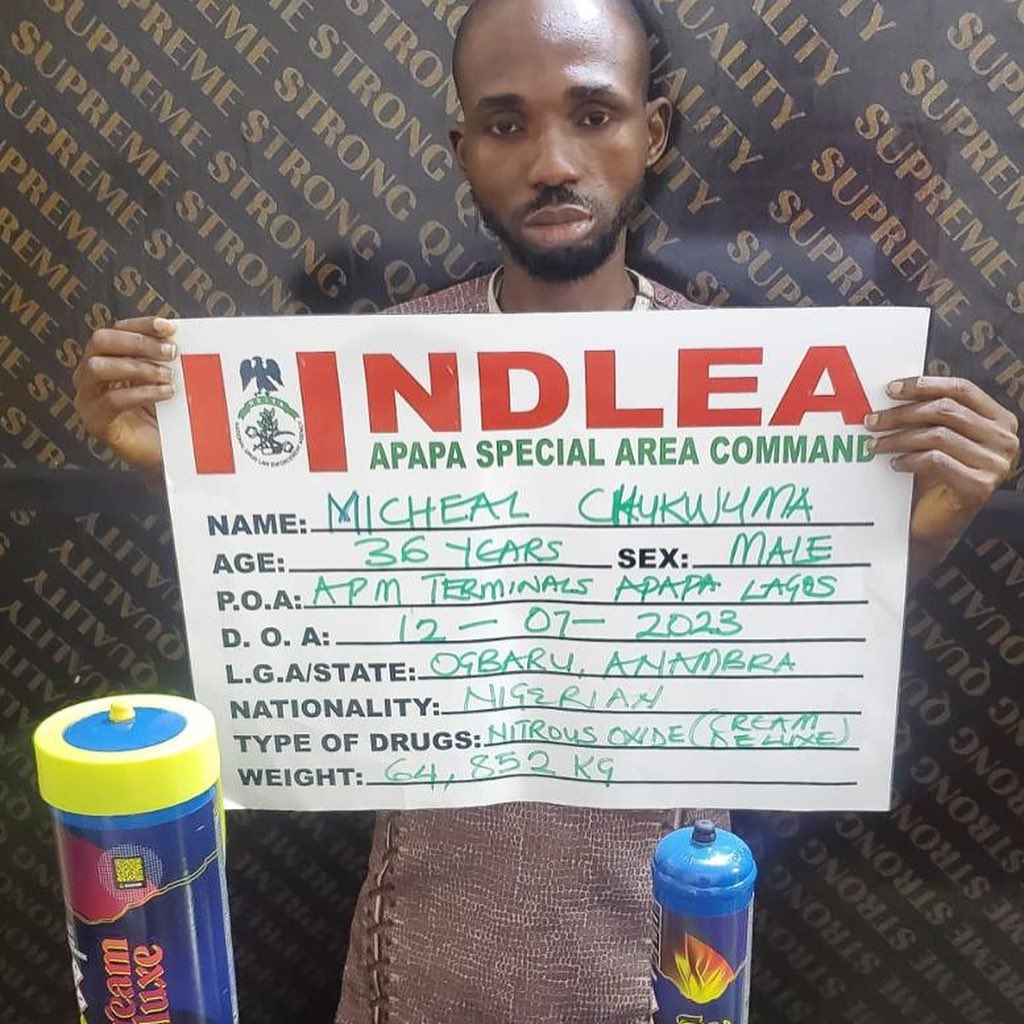 NDLEA
APAPA SPECIAL AREA COMMAND
NAME: MICHEAL CHUKWUMA
AGE: 36 YEARS SEX: MALE
P.O.A: APM TERMINALS APAPA LAGOS
D. O. A: 12 - 07 - 2023
L.G.A/STATE: OGBARU, ANAMBRA
NATIONALITY: NIGERIAN
TYPE OF DRUGS: NITROUS OXIDE (CREAM DELUXE)
WEIGHT: 64,852 KG
SUPREME STRONG QUALITY
SUPREME STRONG QUALITY
SUPREME STRONG
SUPREME STRONG
SUPREME
QUALITY
STRONG